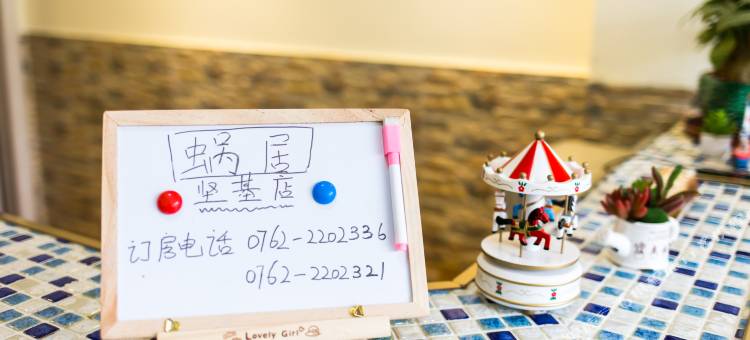 蜗居
坚基店
订房电话 0762-2202336
0762-2202321
Lovely Girl